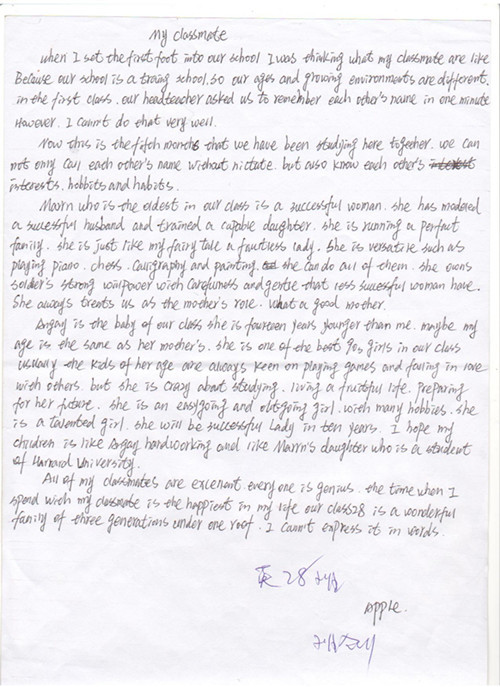 My classmate
when I set the first foot into our school I was thinking what my classmate are like
Because our school is a traing school. so our ages and growing environments are different.
in the first class. our headteacher asked us to remember each other's name in one minute
However. I cannt do that very well.
Now this is the fifth months that we have been studying here together. we can
not only call each other's name without hictate. but also know each other's
interests, hobbits and habits.
Marrn who is the oldest in our class is a successful woman. she has modeled
a sucessful husband and trained a capable daughter. she is running a perfect
family. she is just like my fairy tale a fructress lady. she is versative such as
playing piano. chess. calligraphy and painting. she can do all of them. she owns
solder's strong willpower with carefulness and gentle that less sucessful woman have.
She always treats us as the mother's role. what a good mother.
Angay is the baby of our class she is fourteen years younger than me. maybe my
age is the same as her mother's. she is one of the best 90s girls in our class
usually the kids of her age are always keen on playing games and falling in love
with others. but she is crazy about studying. living a fruitful life. preparing
for her future. she is an easygoing and outgoing girl. with many hobbies. she
is a talented girl. she will be successful lady in ten years. I hope my
children is like Angay hardworking and like Marrn's daughter who is a student
of Harvard University.
All of my classmates are excellent every one is genius. the time when I
spend with my classmate is the happiest in my life our class28 is a wonderful
family of three generations under one roof. I cann't express it in words.
英28
Apple.